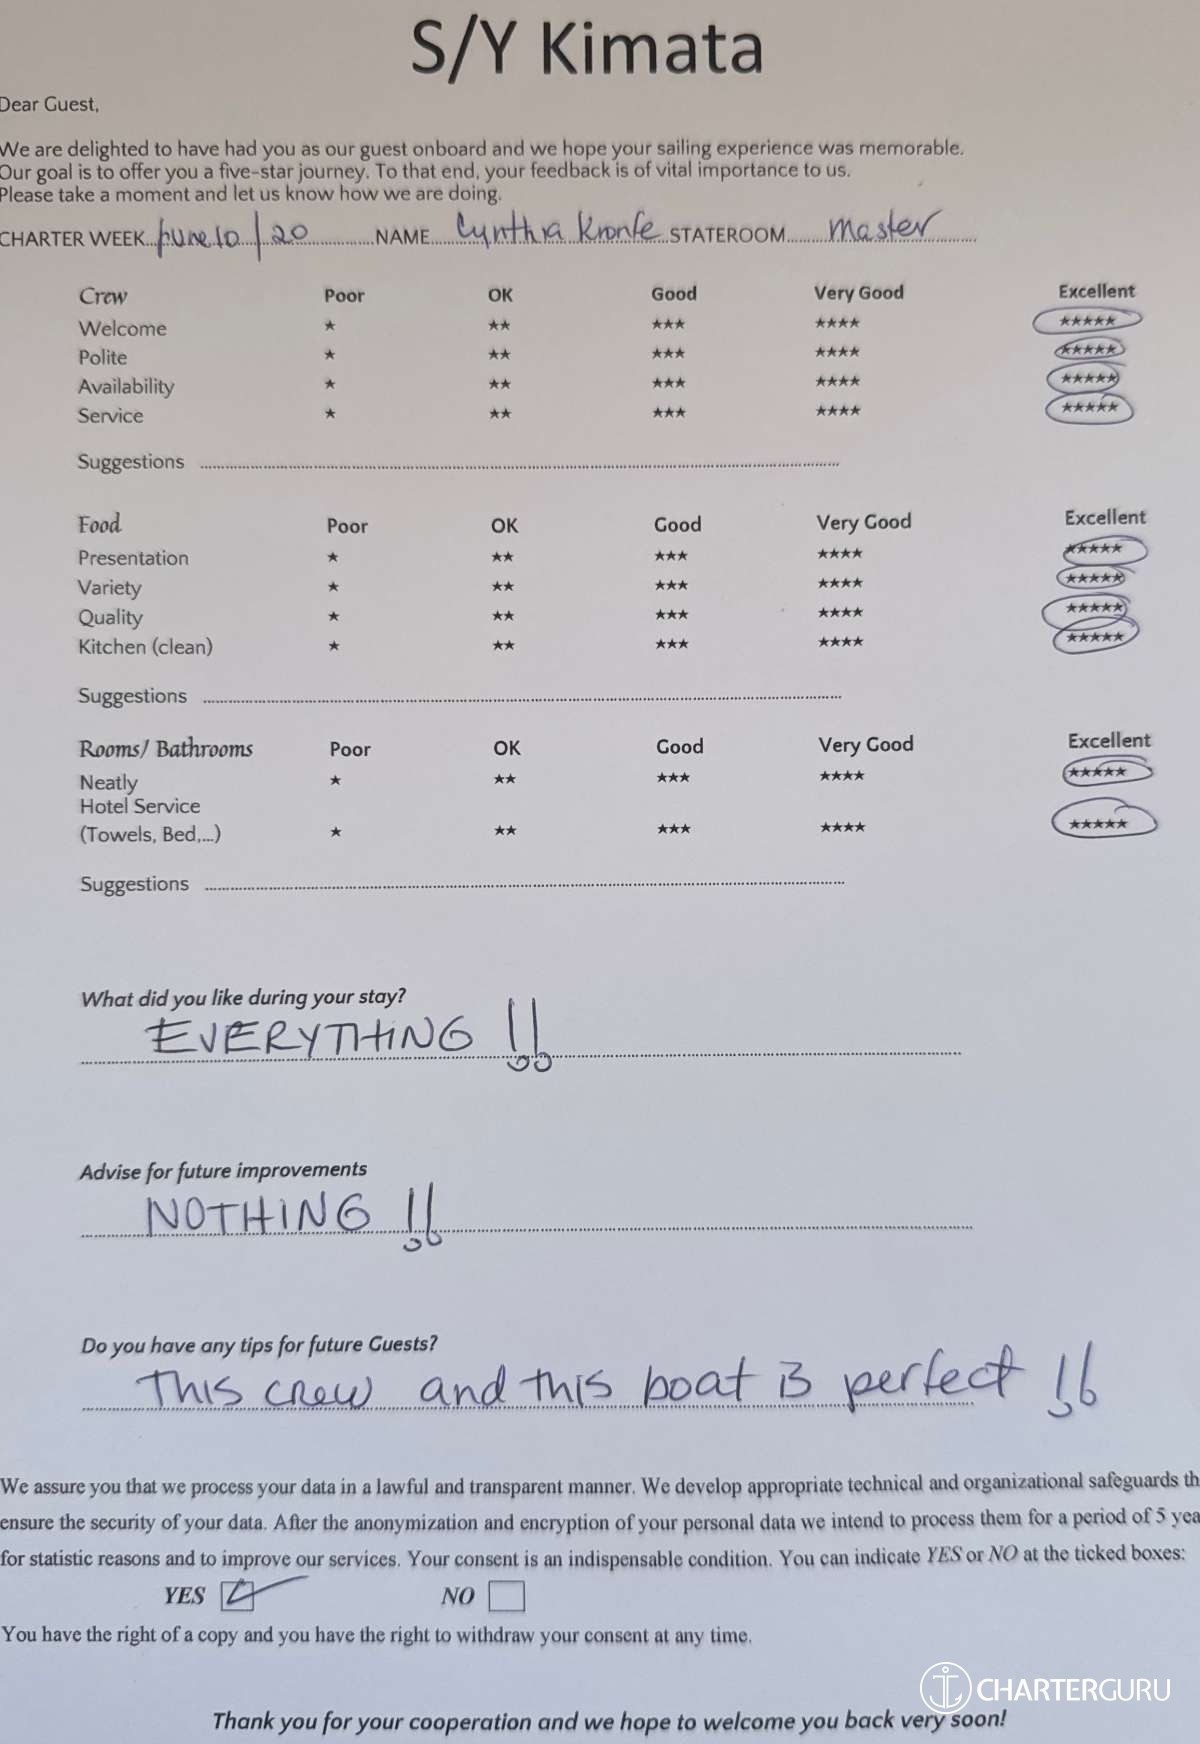 S/Y Kimata
Dear Guest,
We are delighted to have had you as our guest onboard and we hope your sailing experience was memorable.
Our goal is to offer you a five-star journey. To that end, your feedback is of vital importance to us.
Please take a moment and let us know how we are doing.
CHARTER WEEK...June 10/20...NAME...Cynthia Kronfe STATEROOM...Master...
Crew Poor OK Good Very Good Excellent
Welcome ★ ★★ ★★★ ★★★★ ★★★★★
Polite ★ ★★ ★★★ ★★★★ ★★★★★
Availability ★ ★★ ★★★ ★★★★ ★★★★★
Service ★ ★★ ★★★ ★★★★ ★★★★★
Suggestions
Food Poor OK Good Very Good Excellent
Presentation ★ ★★ ★★★ ★★★★ ★★★★★
Variety ★ ★★ ★★★ ★★★★ ★★★★★
Quality ★ ★★ ★★★ ★★★★ ★★★★★
Kitchen (clean) ★ ★★ ★★★ ★★★★ ★★★★★
Suggestions
Rooms/ Bathrooms Poor OK Good Very Good Excellent
Neatly ★ ★★ ★★★ ★★★★ ★★★★★
Hotel Service
(Towels, Bed,...) ★ ★★ ★★★ ★★★★ ★★★★★
Suggestions
What did you like during your stay?
EVERYTHING !!
Advise for future improvements
NOTHING !!
Do you have any tips for future Guests?
This crew and this boat is perfect !!
We assure you that we process your data in a lawful and transparent manner. We develop appropriate technical and organizational safeguards th
ensure the security of your data. After the anonymization and encryption of your personal data we intend to process them for a period of 5 yea
for statistic reasons and to improve our services. Your consent is an indispensable condition. You can indicate YES or NO at the ticked boxes:
YES NO
You have the right of a copy and you have the right to withdraw your consent at any time.
CHARTERGURU
Thank you for your cooperation and we hope to welcome you back very soon!